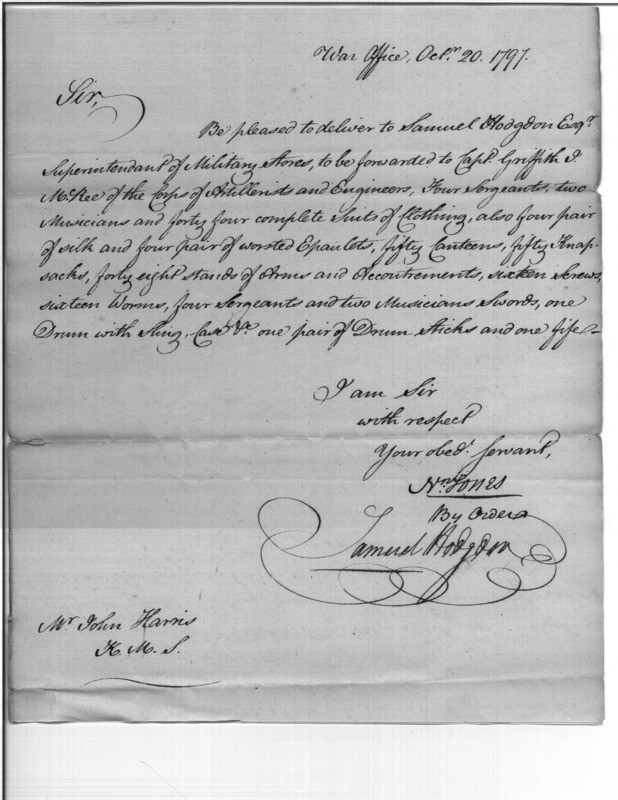 War Office, Octr. 20. 1797.
Sir,
Be pleased to deliver to Samuel Hodgdon Esqr.
Superintendant of Military Stores, to be forwarded to Capt. Griffith J.
McRee of the Corps of Artillerists and Engineers, Four Sergeants, two
Musicians and forty four complete Suits of Clothing, also four pair
of silk and four pair of worsted Epaulets, fifty Canteens, fifty Knap-
sacks, forty eight stands of Arms and Accoutrements, sixteen Screws,
sixteen Worms, four Sergeants and two Musicians Swords, one
Drum with Sling, Case &c. one pair of Drum Sticks and one fife
I am Sir
with respect
Your obedt. Servant,
Wm Jones
By Order
Samuel Hodgdon
Mr John Harris
K. M. S.